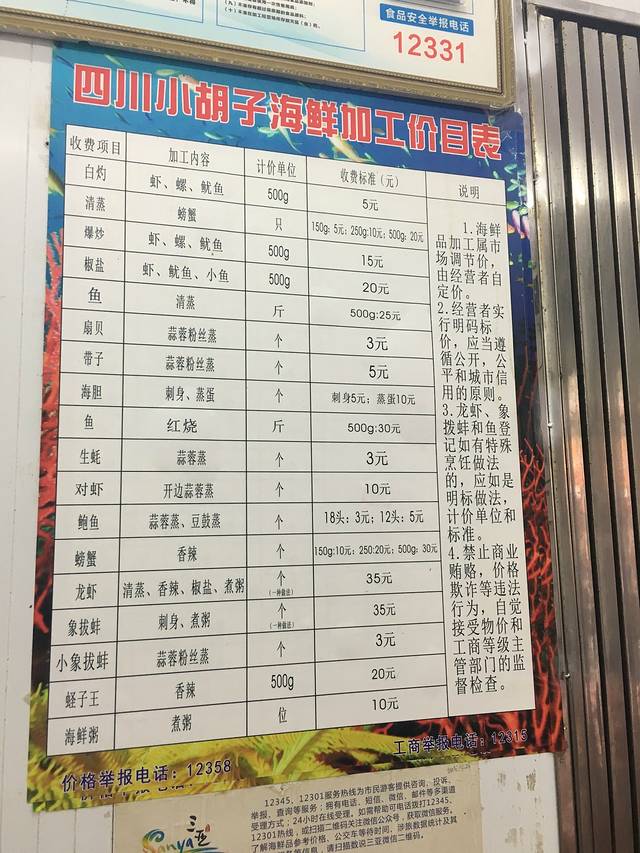 (十)
食品安全举报电话
12331
四川小胡子海鲜加工价目表
收费项目 加工内容 计价单位 收费标准（元） 说明
白灼 虾、螺、鱿鱼 500g 5元
清蒸 螃蟹 只 150g: 5元; 250g:10元; 500g: 20元
爆炒 虾、螺、鱿鱼 500g 15元
椒盐 虾、鱿鱼、小鱼 500g 20元
鱼 清蒸 斤 500g:25元
扇贝 蒜蓉粉丝蒸 个 3元
带子 蒜蓉粉丝蒸 个 5元
海胆 刺身、蒸蛋 个 刺身5元；蒸蛋10元
鱼 红烧 斤 500g:30元
生蚝 蒜蓉蒸 个 3元
对虾 开边蒜蓉蒸 个 10元
鲍鱼 蒜蓉蒸、豆鼓蒸 个 18头: 3元; 12头: 5元
螃蟹 香辣 个 150g:10元; 250:20元; 500g: 30元
龙虾 清蒸、香辣、椒盐、煮粥 个（一种做法） 35元
象拔蚌 刺身、煮粥 个（一种做法） 35元
小象拔蚌 蒜蓉粉丝蒸 个 3元
蛏子王 香辣 500g 20元
海鲜粥 煮粥 位 10元
1.海鲜
品加工属市
场调节价，
由经营者自
定价。
2.经营者实
行明码标
价，应当遵
循公开，公
平和城市信
用的原则。
3.龙虾、象
拨蚌和鱼登
记如有特殊
烹饪做法
的，应如是
明标做法，
计价单位和
标准。
4.禁止商业
贿赂，价格
欺诈等违法
行为，自觉
接受物价和
工商等级主
管部门的监
督检查。
价格举报电话：12358
工商举报电话：12315
三亚
Sanya
12345、12301服务热线为市民游客提供咨询、投诉、
举报、查询等服务；拥有电话、短信、微信、邮件等多渠道
受理方式；24小时在线服务。如需帮助可电话拨打12345、
12301热线，或扫描二维码关注微信公众号，获取微信服务。
了解海鲜品参考价格、公交车等待时间、涉旅数据统计及其